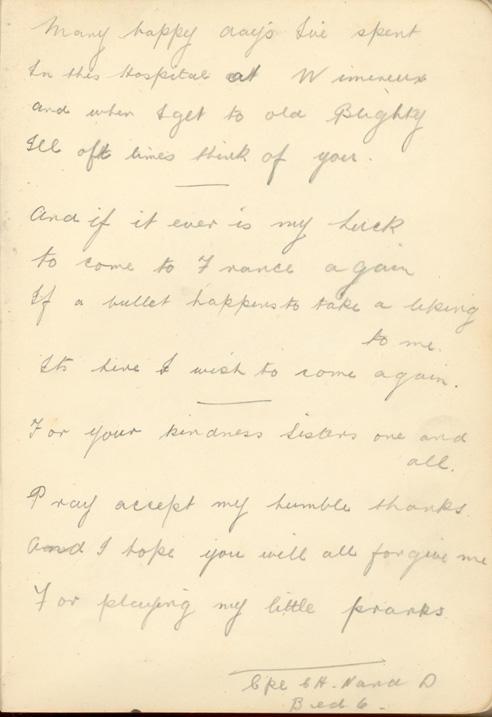 Many happy days I've spent
In this Hospital at Wimereux
and when I get to old Blighty
Ill oft times think of you.
And if it ever is my luck
to come to France again
If a bullet happens to take a liking
to me.
Its here I wish to come again.
For your kindness Sisters one and
all.
Pray accept my humble thanks.
And I hope you will all forgive me
For playing my little pranks
Cpl C H. Ward D
Bed 6.